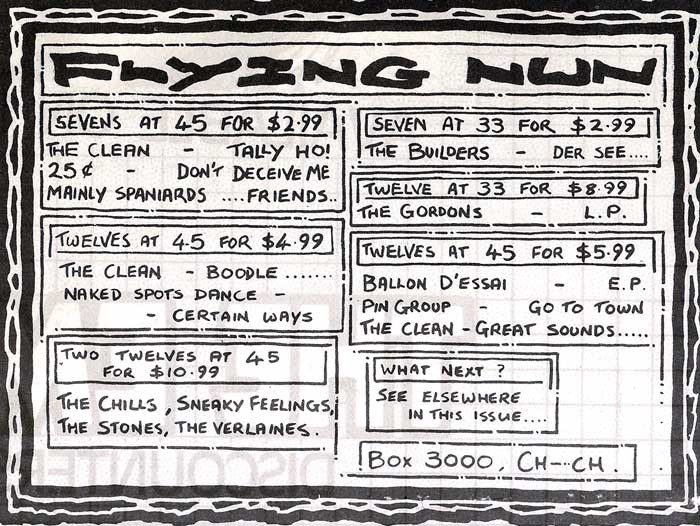 FLYING NUN
SEVENS AT 45 FOR $2.99
THE CLEAN - TALLY HO!
25¢ - DON'T DECEIVE ME
MAINLY SPANIARDS ....FRIENDS..
TWELVES AT 45 FOR $4.99
THE CLEAN - BOODLE .......
NAKED SPOTS DANCE -
- CERTAIN WAYS
TWO TWELVES AT 45
FOR $10.99
THE CHILLS, SNEAKY FEELINGS,
THE STONES, THE VERLAINES.
SEVEN AT 33 FOR $2.99
THE BUILDERS - DER SEE....
TWELVE AT 33 FOR $8.99
THE GORDONS - L.P.
TWELVES AT 45 FOR $5.99
BALLON D'ESSAI - E.P.
PIN GROUP - GO TO TOWN
THE CLEAN - GREAT SOUNDS.....
WHAT NEXT ?
SEE ELSEWHERE
IN THIS ISSUE....
BOX 3000, CH--CH.
DISCOUNTE